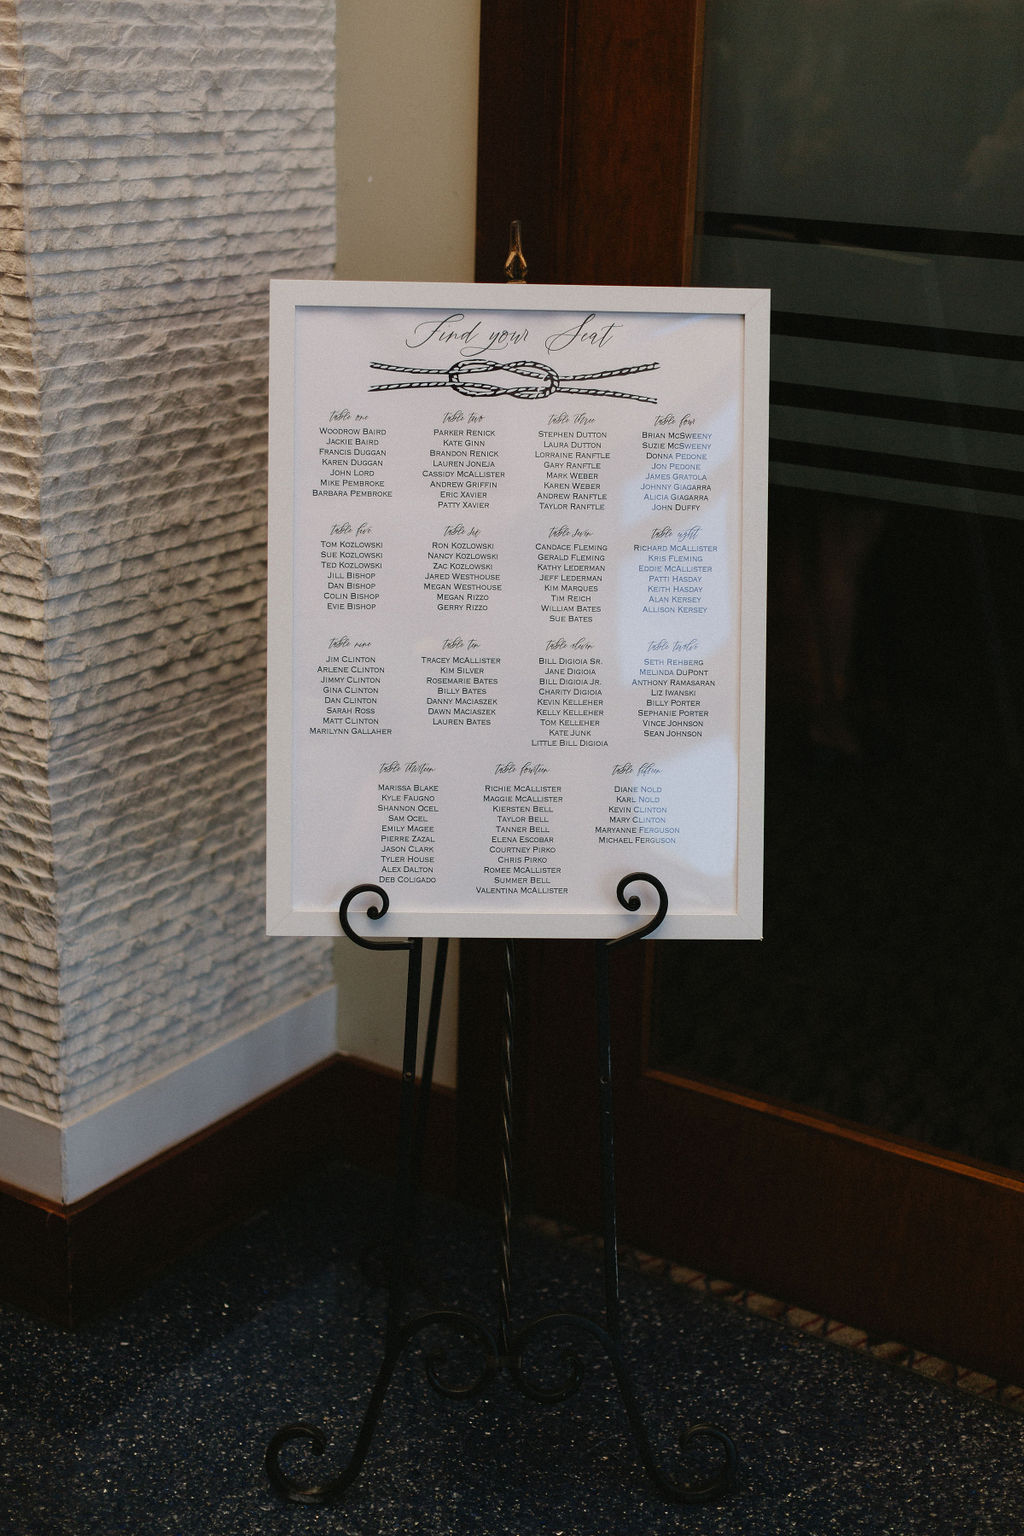 Find your Seat
table one
WOODROW BAIRD
JACKIE BAIRD
FRANCIS DUGGAN
KAREN DUGGAN
JOHN LORD
MIKE PEMBROKE
BARBARA PEMBROKE
table two
PARKER RENICK
KATE GINN
BRANDON RENICK
LAUREN JONEJA
CASSIDY MCALLISTER
ANDREW GRIFFIN
ERIC XAVIER
PATTY XAVIER
table three
STEPHEN DUTTON
LAURA DUTTON
LORRAINE RANFTLE
GARY RANFTLE
MARK WEBER
KAREN WEBER
ANDREW RANFTLE
TAYLOR RANFTLE
table four
BRIAN MCSWEENY
SUZIE MCSWEENY
DONNA PEDONE
JON PEDONE
JAMES GRATOLA
JOHNNY GIAGARRA
ALICIA GIAGARRA
JOHN DUFFY
table five
TOM KOZLOWSKI
SUE KOZLOWSKI
TED KOZLOWSKI
JILL BISHOP
DAN BISHOP
COLIN BISHOP
EVIE BISHOP
table six
RON KOZLOWSKI
NANCY KOZLOWSKI
ZAC KOZLOWSKI
JARED WESTHOUSE
MEGAN WESTHOUSE
MEGAN RIZZO
GERRY RIZZO
table seven
CANDACE FLEMING
GERALD FLEMING
KATHY LEDERMAN
JEFF LEDERMAN
KIM MARQUES
TIM REICH
WILLIAM BATES
SUE BATES
table eight
RICHARD MCALLISTER
KRIS FLEMING
EDDIE MCALLISTER
PATTI HASDAY
KEITH HASDAY
ALAN KERSEY
ALLISON KERSEY
table nine
JIM CLINTON
ARLENE CLINTON
JIMMY CLINTON
GINA CLINTON
DAN CLINTON
SARAH ROSS
MATT CLINTON
MARILYNN GALLAHER
table ten
TRACEY MCALLISTER
KIM SILVER
ROSEMARIE BATES
BILLY BATES
DANNY MACIASZEK
DAWN MACIASZEK
LAUREN BATES
table eleven
BILL DIGIOIA SR.
JANE DIGIOIA
BILL DIGIOIA JR.
CHARITY DIGIOIA
KEVIN KELLEHER
KELLY KELLEHER
TOM KELLEHER
KATE JUNK
LITTLE BILL DIGIOIA
table twelve
SETH REHBERG
MELINDA DUPONT
ANTHONY RAMASARAN
LIZ IWANSKI
BILLY PORTER
SEPHANIE PORTER
VINCE JOHNSON
SEAN JOHNSON
table thirteen
MARISSA BLAKE
KYLE FAUGNO
SHANNON OCEL
SAM OCEL
EMILY MAGEE
PIERRE ZAZAL
JASON CLARK
TYLER HOUSE
ALEX DALTON
DEB COLIGADO
table fourteen
RICHIE MCALLISTER
MAGGIE MCALLISTER
KIERSTEN BELL
TAYLOR BELL
TANNER BELL
ELENA ESCOBAR
COURTNEY PIRKO
CHRIS PIRKO
ROMEE MCALLISTER
SUMMER BELL
VALENTINA MCALLISTER
table fifteen
DIANE NOLD
KARL NOLD
KEVIN CLINTON
MARY CLINTON
MARYANNE FERGUSON
MICHAEL FERGUSON